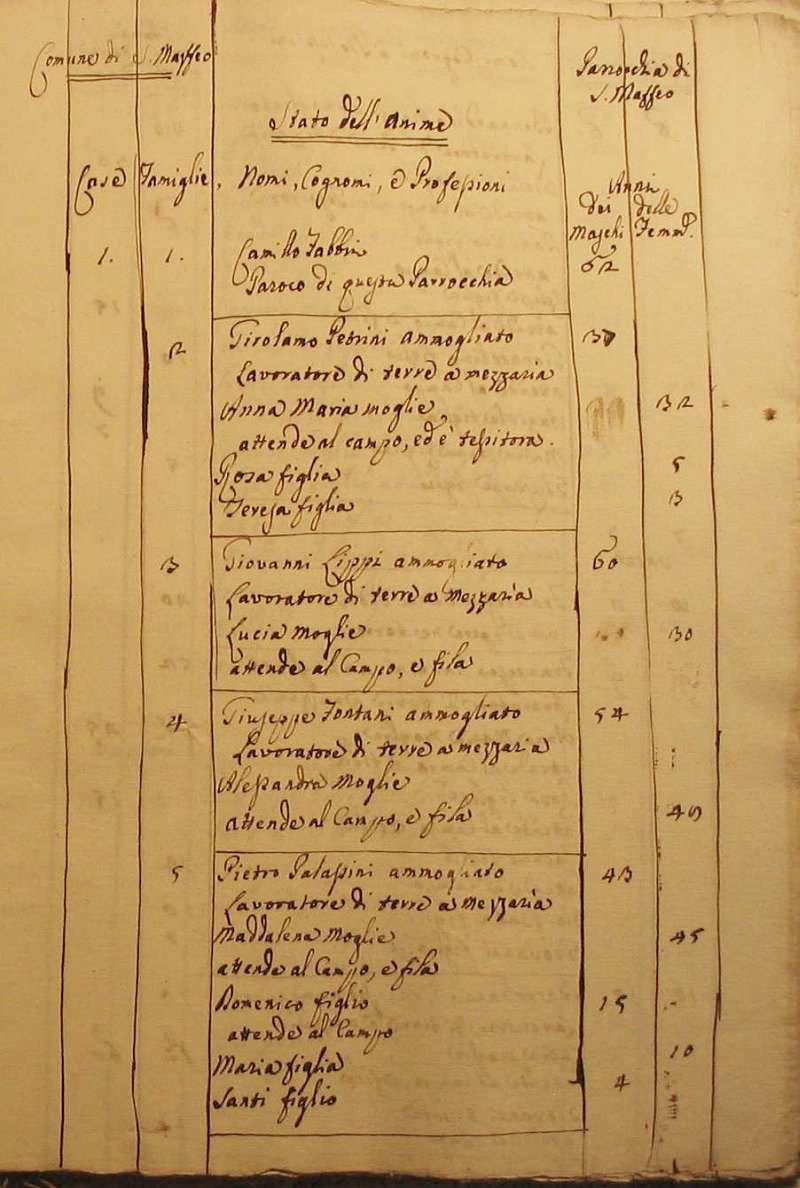 Comune di S. Maffeo
Parrochia di
S. Maffeo
Stato dell'Anime
Case Famiglie, Nomi, Cognomi, e Professioni
Anni
dei delle
Maschi Femm.
1. 1. Camillo Fabbri 62
Paroco di questa Parrocchia
2 Girolamo Petrini ammogliato 37
Lavoratore di terre a mezzaria
Anna Maria moglie 32
attende al campo, ed è tessitora.
Rosa figlia 5
Teresa figlia 3
3 Giovanni Lippi ammogliato 60
Lavoratore di terre a mezzaria
Lucia moglie 30
attende al Campo, e fila
4 Giuseppe Fontani ammogliato 54
Lavoratore di terre a mezzaria
Alessandra Moglie
attende al Campo, e fila 49
5 Pietro Palassini ammogliato 43
Lavoratore di terre a mezzaria
Maddalena Moglie 45
attende al Campo, e fila
Domenico figlio 15
attende al Campo
Maria figlia 10
Santi figlio 4